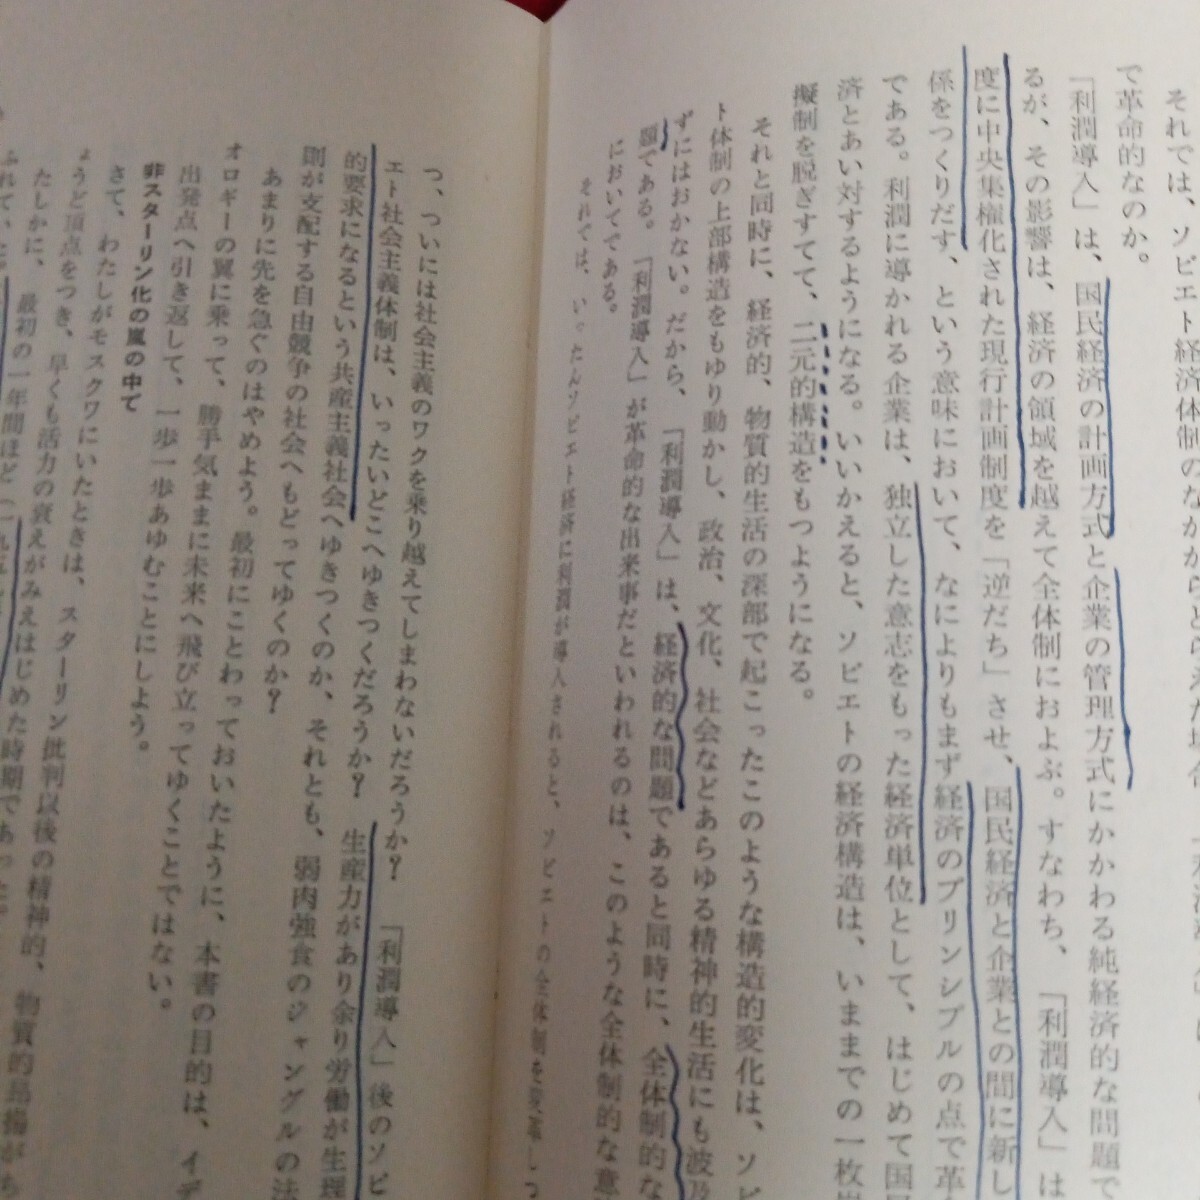 それでは、ソビエト経済体制のなかからとらえた場合、
で革命的なのか。
「利潤導入」は、国民経済の計画方式と企業の管理方式にかかわる純経済的な問題で
るが、その影響は、経済の領域を越えて全体制におよぶ。すなわち、「利潤導入」は
度に中央集権化された現行計画制度を「逆だち」させ、国民経済と企業との間に新し
係をつくりだす、という意味において、なによりもまず経済のプリンシプルの点で革
である。利潤に導かれる企業は、独立した意志をもった経済単位として、はじめて国
済とあい対するようになる。いいかえると、ソビエトの経済構造は、いままでの一枚
擬制を脱ぎすてて、二元的構造をもつようになる。
それと同時に、経済的、物質的生活の深部で起こったこのような構造的変化は、ソビ
ト体制の上部構造をもゆり動かし、政治、文化、社会などあらゆる精神的生活にも波及
ずにはおかない。だから、「利潤導入」は、経済的な問題であると同時に、全体制的な
題である。「利潤導入」が革命的な出来事だといわれるのは、このような全体制的な意
においてである。
それでは、いったんソビエト経済に利潤が導入されると、ソビエトの全体制を変革しつ
つ、ついには社会主義のワクを乗り越えてしまわないだろうか？「利潤導入」後のソビ
エト社会主義体制は、いったいどこへゆきつくだろうか？生産力があり余り労働が生理
的要求になるという共産主義社会へゆきつくのか、それとも、弱肉強食のジャングルの法
則が支配する自由競争の社会へもどってゆくのか？
あまりに先を急ぐのはやめよう。最初にことわっておいたように、本書の目的は、イデ
オロギーの翼に乗って、勝手気ままに未来へ飛び立ってゆくことではない。
出発点へ引き返して、一歩一歩あゆむことにしよう。
非スターリン化の嵐の中で
さて、わたしがモスクワにいたときは、スターリン批判以後の精神的、物質的昂揚がち
ょうど頂点をつき、早くも活力の衰えがみえはじめた時期であった
たしかに、最初の一年間ほど